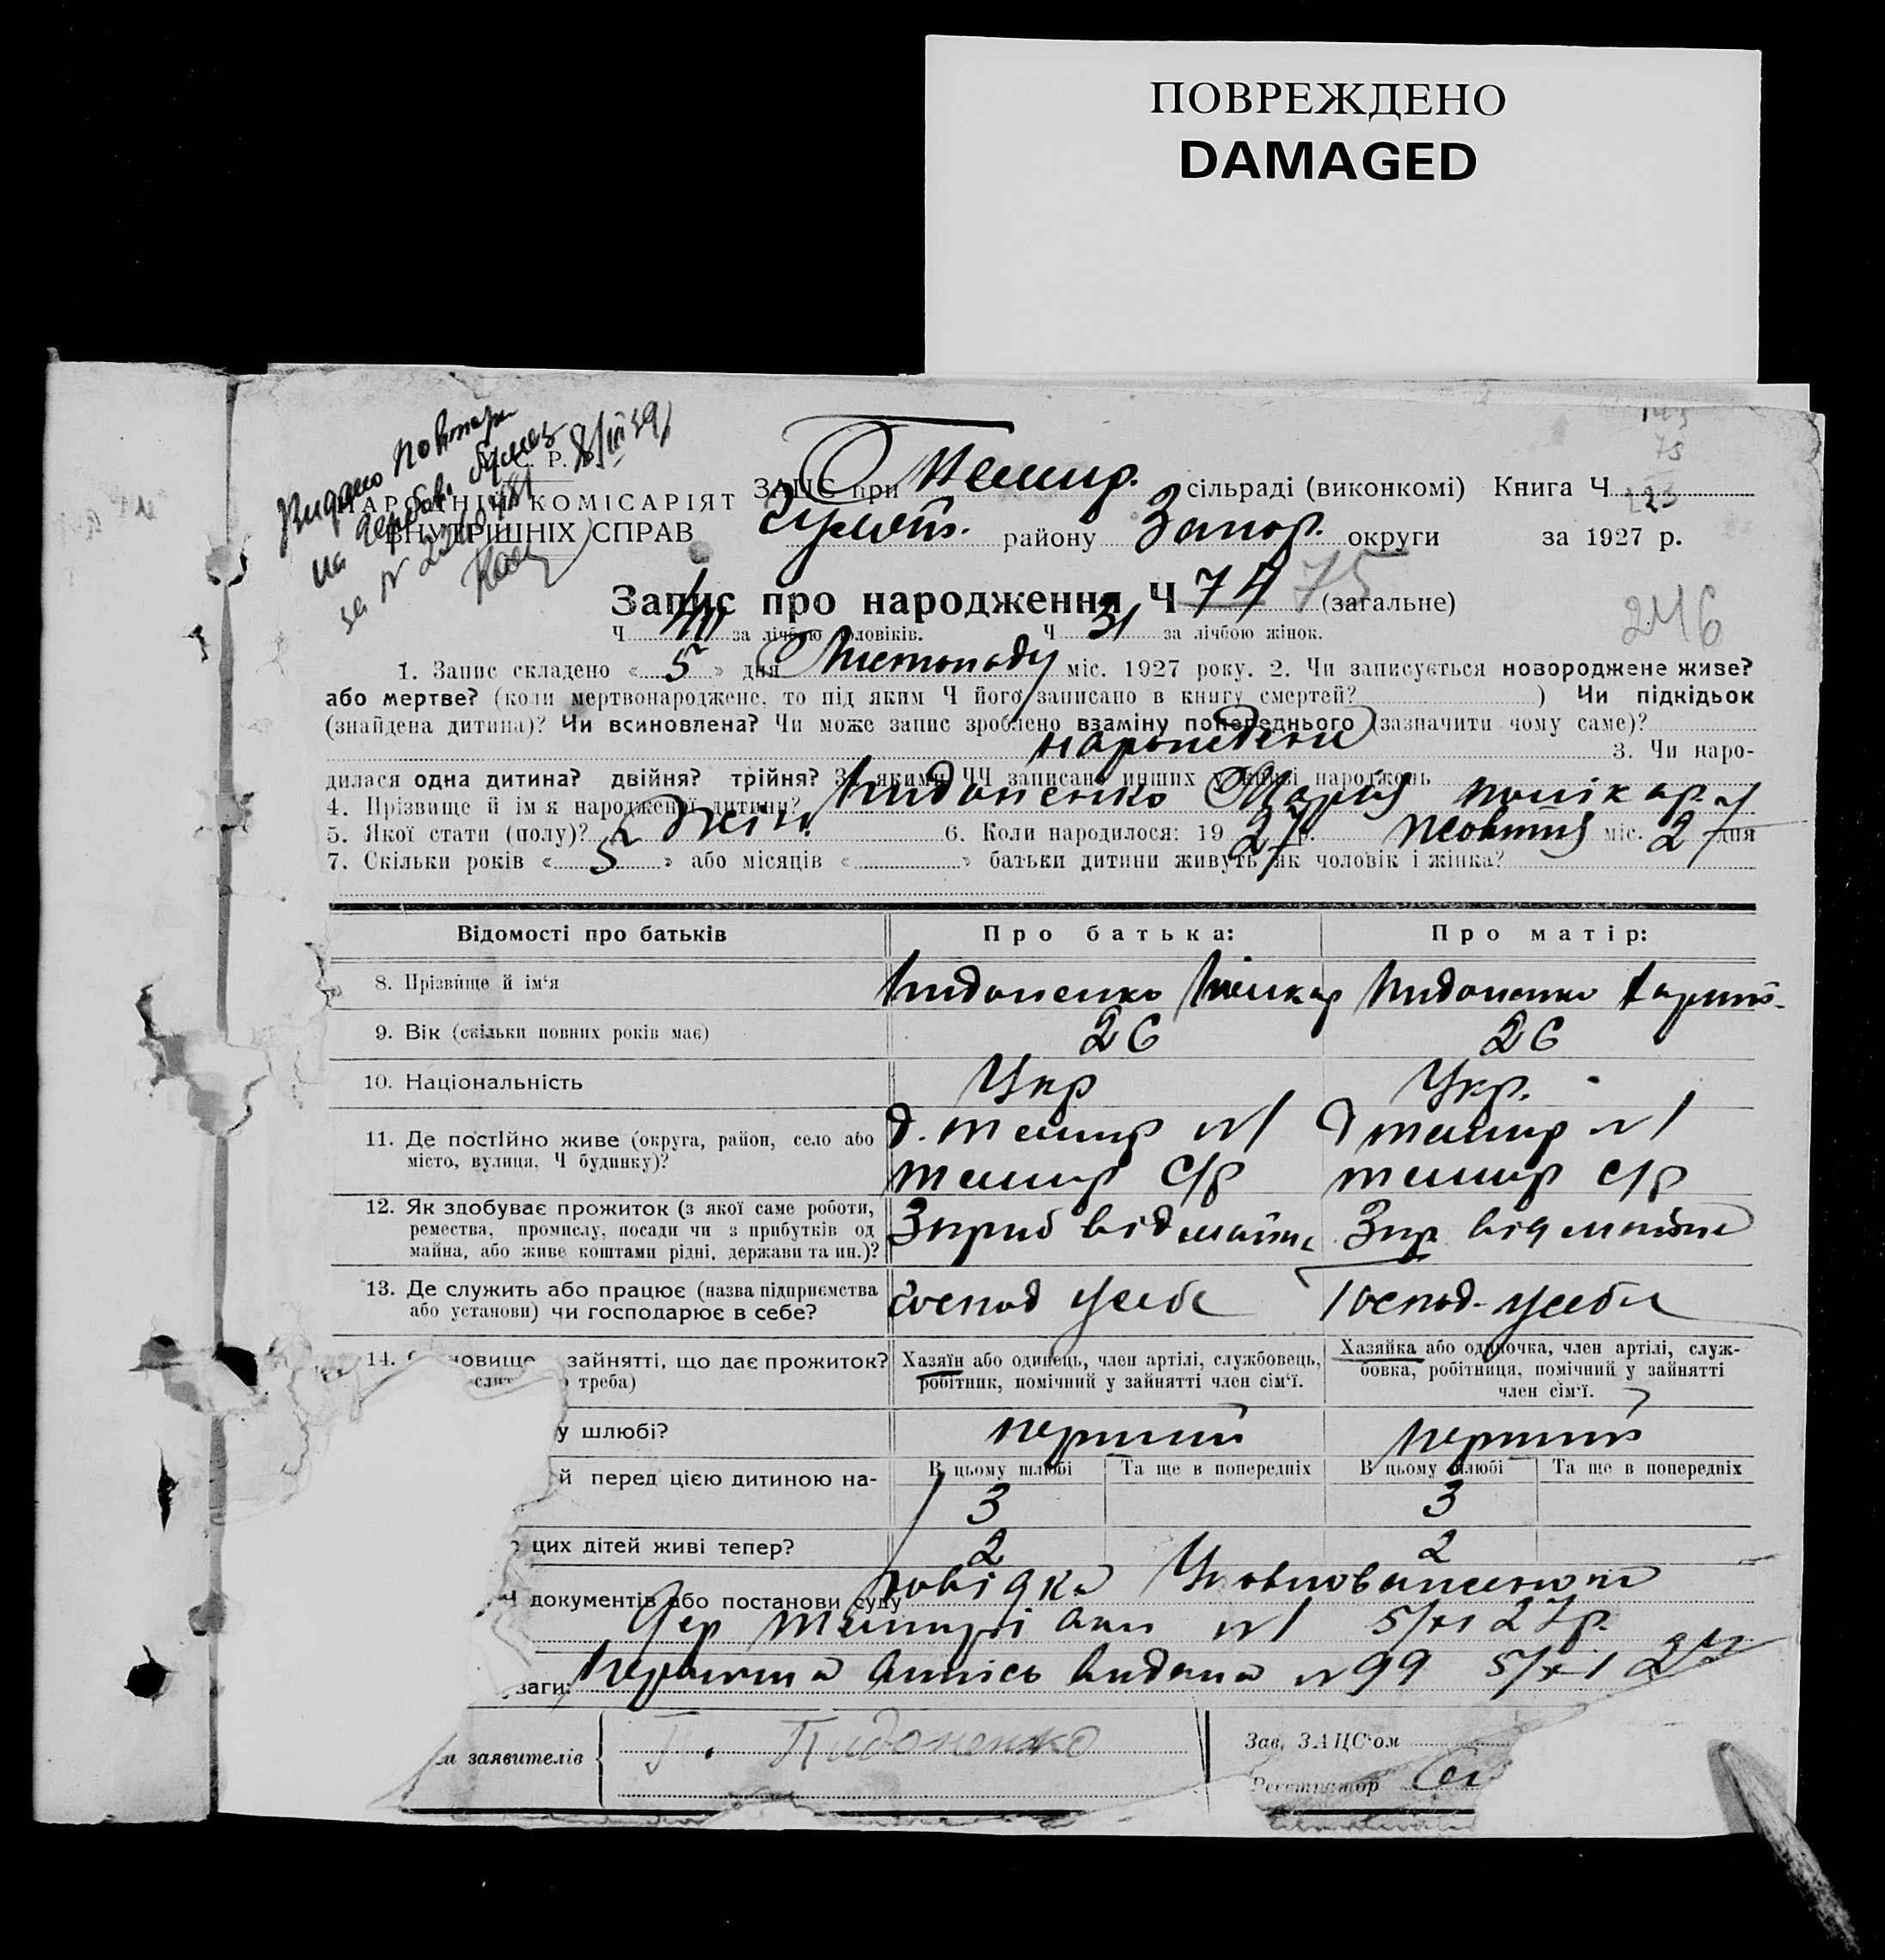 ПОВРЕЖДЕНО
DAMAGED
Видано повтор
на гербов.
за №
Р.
НАРОДНІЙ КОМІСАРІЯТ
ВНУТРІШНІХ СПРАВ
ЗАЦС при Темир. сільраді (виконкомі) Книга Ч 23
району Запор. округи за 1927 р.
Запис про народження Ч 74 75 (загальне)
246
Ч за лічбою чоловіків. Ч 31 за лічбою жінок.
1. Запис складено « 5 » дня Листопаду міс. 1927 року. 2. Чи записується новороджене живе?
або мертве? (коли мертвонароджене, то під яким Ч його записано в книгу смертей? ) Чи підкідьок
(знайдена дитина)? Чи всиновлена? Чи може запис зроблено взаміну попереднього (зазначити чому саме)?
3. Чи наро-
дилася одна дитина? двійня? трійня? За якими ЧЧ записано инших у книзі народжень
4. Прізвище й ім'я народженої дитини? Пидоненко Марія
5. Якої стати (полу)? Жін. 6. Коли народилося: 19 27 р. жовтня міс. 27 дня
7. Скільки років « 5 » або місяців « » батьки дитини живуть як чоловік і жінка?
Відомості про батьків Про батька: Про матір:
8. Прізвище й ім'я Пидоненко Пидоненко
9. Вік (скільки повних років має) 26 26
10. Національність Укр Укр.
11. Де постійно живе (округа, район, село або
місто, вулиця, Ч будинку)?
д. Темир №1 д Темир №1
Темир с/р Темир с/р
12. Як здобуває прожиток (з якої саме роботи,
ремества, промислу, посади чи з прибутків од
майна, або живе коштами рідні, держави та ин.)?
13. Де служить або працює (назва підприємства
або установи) чи господарює в себе?
Господ усебе Господ. усебе
14. зайнятті, що дає прожиток?
треба)
Хазяїн або одинець, член артілі, службовець,
робітник, помічний у зайнятті член сім'ї.
Хазяйка або одиночка, член артілі, служ-
бовка, робітниця, помічний у зайнятті
член сім'ї.
у шлюбі? перший перший
й перед цією дитиною на-
В цьому шлюбі Та ще в попередніх В цьому шлюбі Та ще в попередніх
3 3
цих дітей живі тепер? 2 2
Ч документів або постанови суду довідка Уповноваженого
№1 5/XI 27р.
ваги: Первична випись видана №99 5/XI 27
заявителів П. Пидоненко
Зав. ЗАЦС'ом
Реєстратор